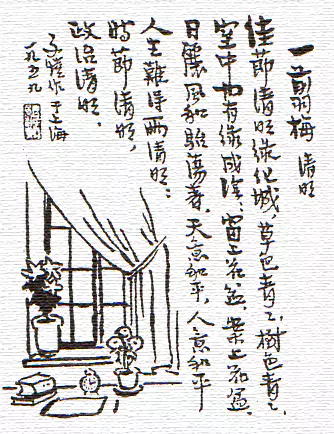 一翦梅 清明
佳節清明綠化城，草色青々，樹色青々，
室中也有綠成陰，窗上花盆，案上花盆，
日麗風和駘蕩春，天意和平，人意和平
人生難得兩清明：
時節清明，
政治清明。
子愷作于上海
一九五九